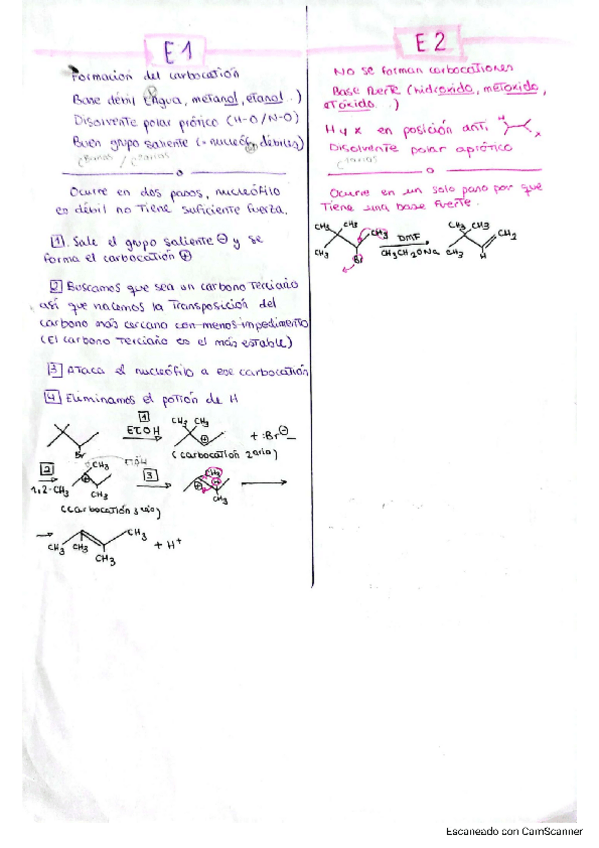 E1
Formacion del carbocatión
Base débil (Agua, metanol, etanol..)
Disolvente polar prótico (H-O/N-O)
Buen grupo saliente (= nucleóf. débiles)
Ocurre en dos pasos, nucleófilo
es débil no tiene suficiente fuerza.
1. Sale el grupo saliente ⊖ y se
forma el carbocatión ⊕
2 Buscamos que sea un carbono terciario
así que hacemos la transposición del
carbono más cercano con menos impedimento
(El carbono terciario es el más estable)
3 Ataca el nucleófilo a ese carbocatión
4 Eliminamos el potión de H
1
EtOH
CH3 CH3
⊕
+ :Br⊖
Br
(carbocatión 2ario)
2
1,2-CH3
CH3
⊕
CH3
3
⊕
CH3
CH3
(carbocatión 3ario)
CH3 CH3 CH3
CH3
+ H+
E2
No se forman carbocationes
Base fuerte (hidróxido, metóxido,
etóxido..)
H y x en posición anti. H x
Disolvente polar aprótico
Ocurre en un solo paso por que
tiene una base fuerte.
CH3 CH3 CH3
CH3 Br
DMF
CH3CH2ONa
CH3 CH3 CH2
CH3 H
Escaneado con CamScanner